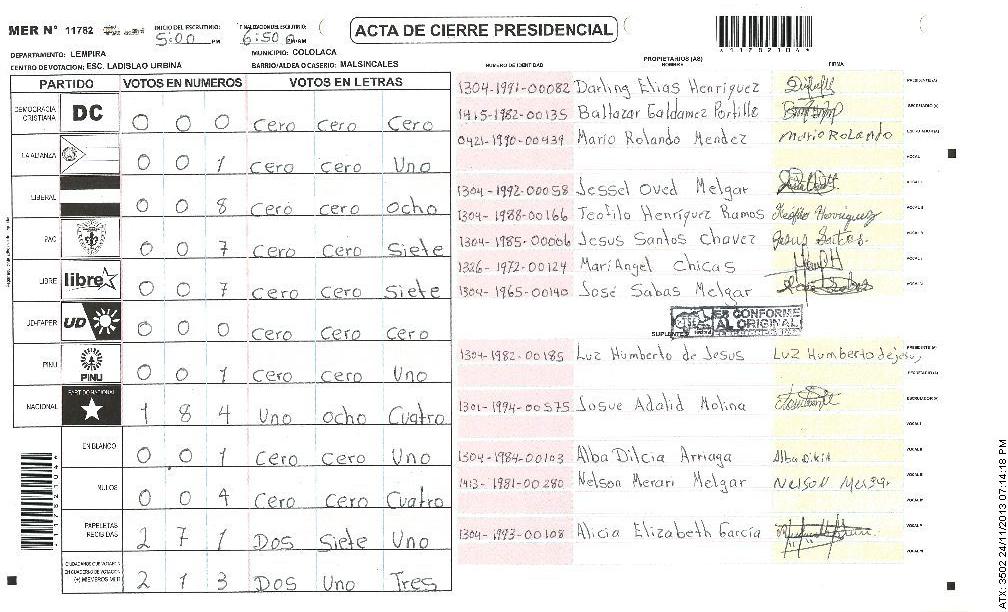 MER N° 11782
INICIO DEL ESCRUTINIO:
5:00 PM
FINALIZACION DEL ESCRUTINIO:
6:50 PM/AM
ACTA DE CIERRE PRESIDENCIAL
DEPARTAMENTO: LEMPIRA
MUNICIPIO: COLOLACA
CENTRO DE VOTACION: ESC. LADISLAO URBINA
BARRIO/ALDEA O CASERIO: MALSINCALES
PARTIDO VOTOS EN NUMEROS VOTOS EN LETRAS
DEMOCRACIA CRISTIANA DC 0 0 0 Cero Cero Cero
LA ALIANZA 0 0 1 Cero Cero Uno
LIBERAL 0 0 8 Cero Cero Ocho
PAC 0 0 7 Cero Cero Siete
LIBRE libre 0 0 7 Cero Cero Siete
UD-FAPER UD 0 0 0 Cero Cero Cero
PINU PINU 0 0 1 Cero Cero Uno
NACIONAL PARTIDO NACIONAL 1 8 4 Uno Ocho Cuatro
EN BLANCO 0 0 1 Cero Cero Uno
NULOS 0 0 4 Cero Cero Cuatro
PAPELETAS RECIBIDAS 2 7 1 Dos Siete Uno
CIUDADANOS QUE VOTARON EN CUADERNO DE VOTACION (+) MIEMROS MER 2 1 3 Dos Uno Tres
NUMERO DE IDENTIDAD PROPIETARIOS (AS) NOMBRE FIRMA
1304-1991-00082 Darling Elias Henriquez
1415-1982-00135 Baltazar Galdamez Portillo
0421-1990-00439 Mario Rolando Mendez Mario Rolando
1304-1992-00058 Jessel Oved Melgar
1304-1988-00166 Teofilo Henriquez Ramos Teofilo Henriquez
1304-1985-00006 Jesus Santos Chavez Jesus Santos
1326-1972-00124 Mari Angel Chicas
1304-1965-00140 José Sabas Melgar
ES CONFORME AL ORIGINAL
SUPLENTES
1304-1982-00185 Luz Humberto de Jesus Luz Humberto de jesus
1301-1994-00575 Josue Adalid Molina
1304-1984-00103 Alba Dilcia Arriaga Alba Dilcia
1413-1981-00280 Nelson Merari Melgar Nelson Melgar
1304-1993-00108 Alicia Elizabeth Garcia
ATX: 3502 24/11/2013 07:14:18 PM